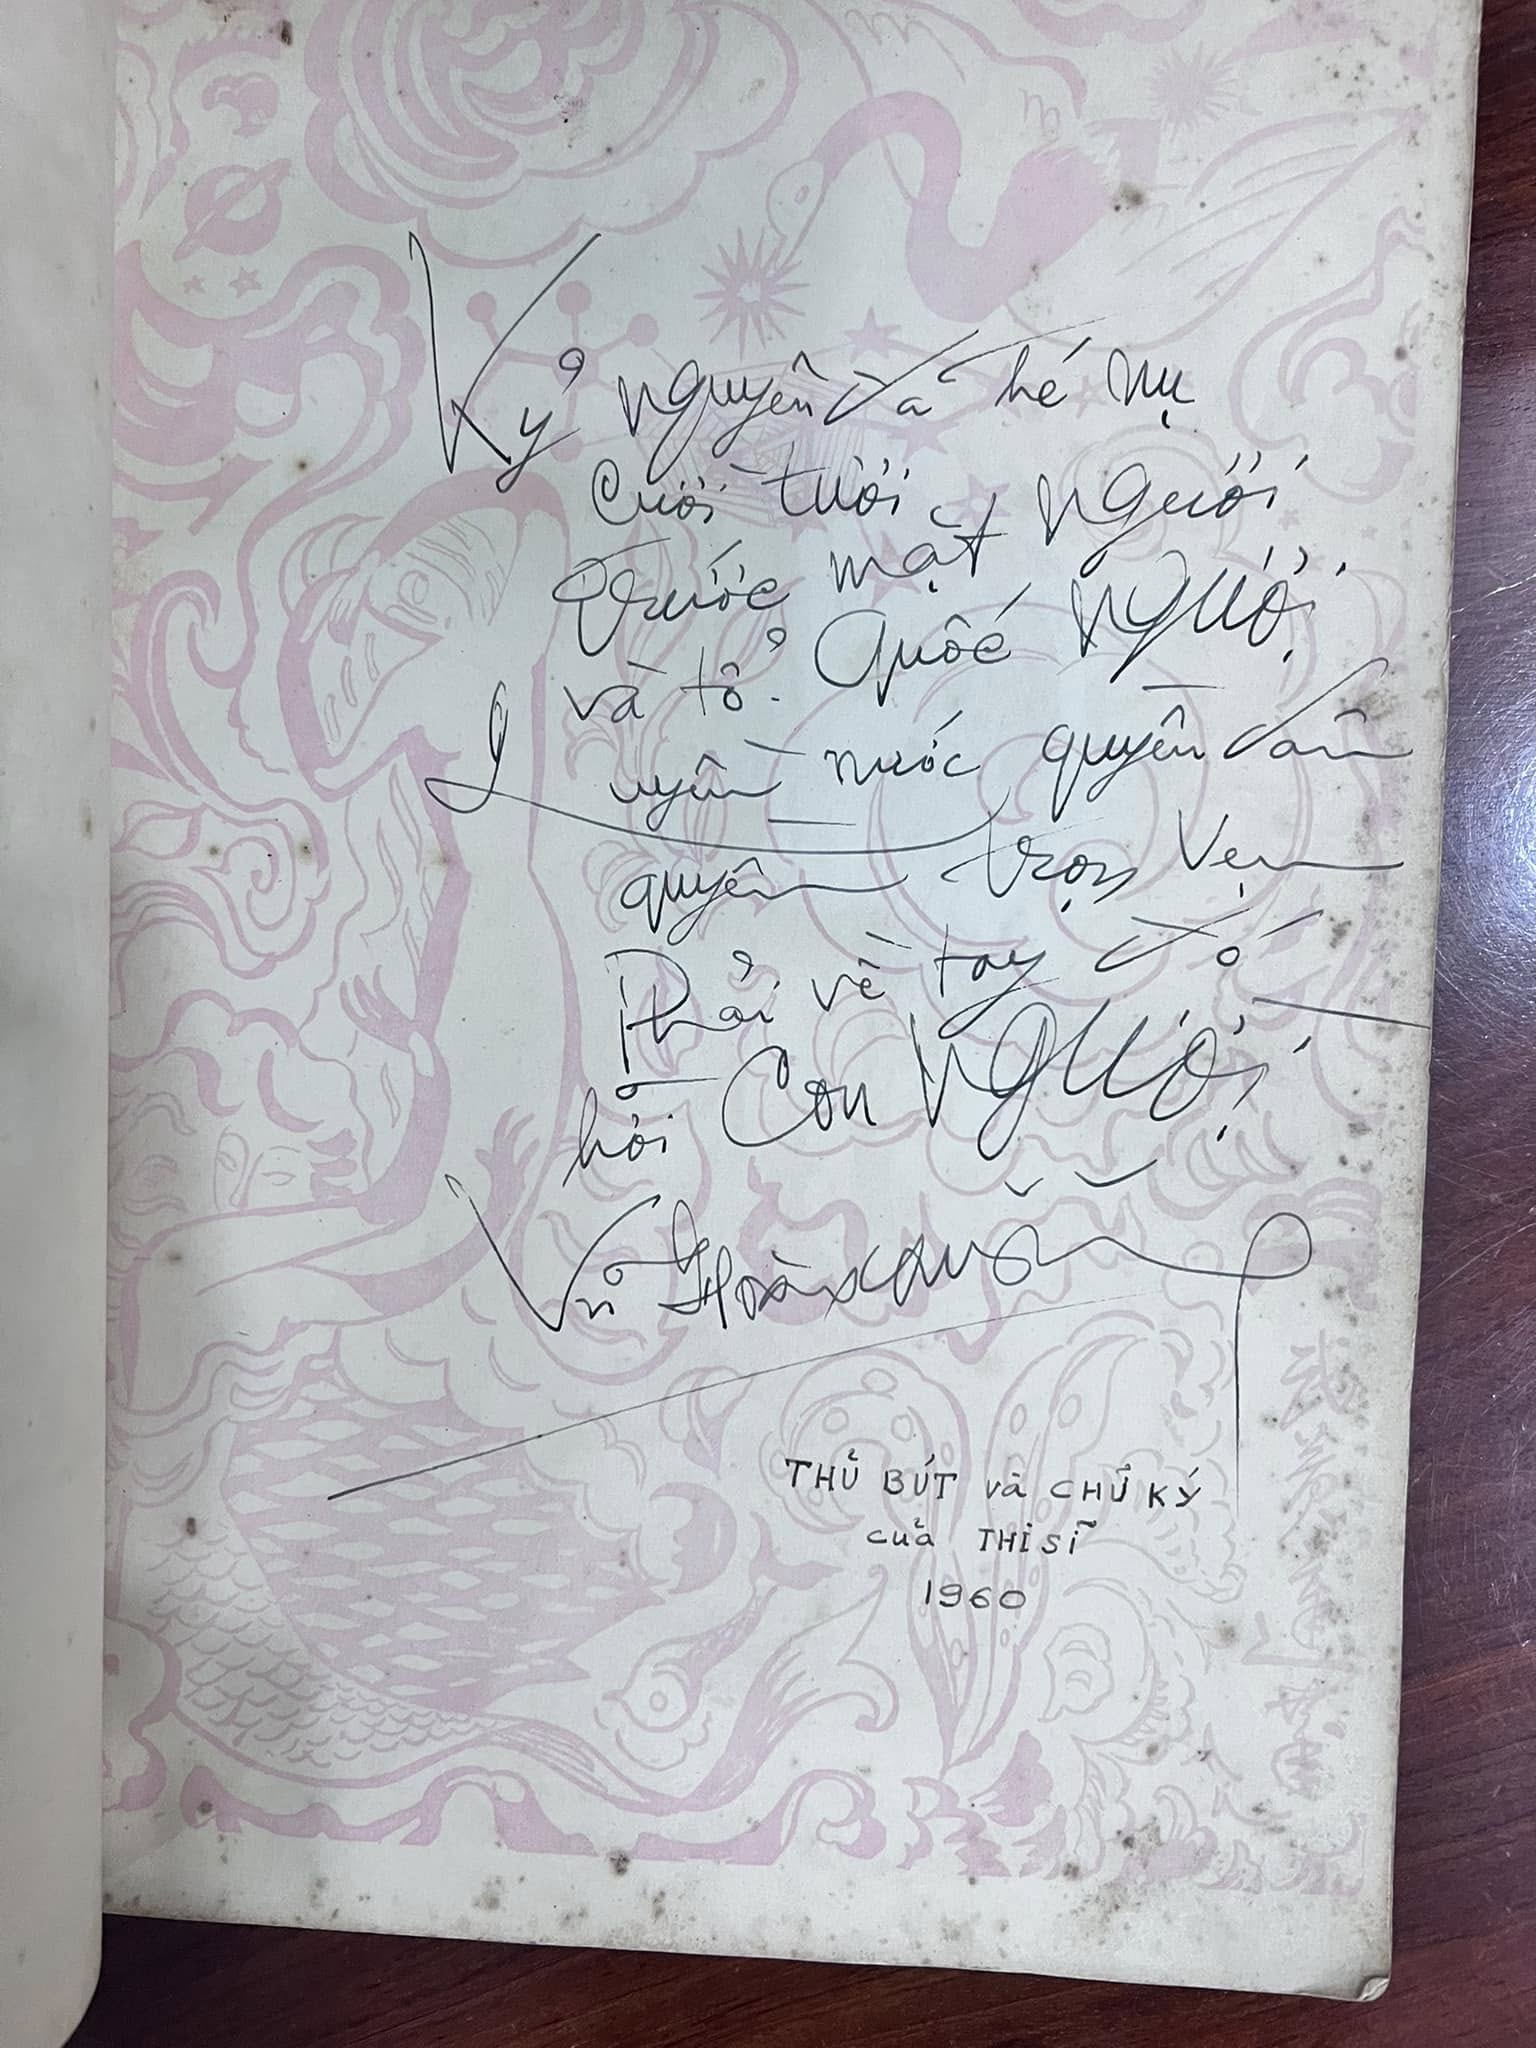 Kỷ nguyên đã hé nụ
Cười tươi
Trước mặt người người
và tổ Quốc NGƯỜI
Quyền nước quyền dân
quyền trọn vẹn
Phải về tay đó
hỡi Con NGƯỜI
Vũ Hoàng Chương
THỦ BÚT và CHỮ KÝ
của THI SĨ
1960